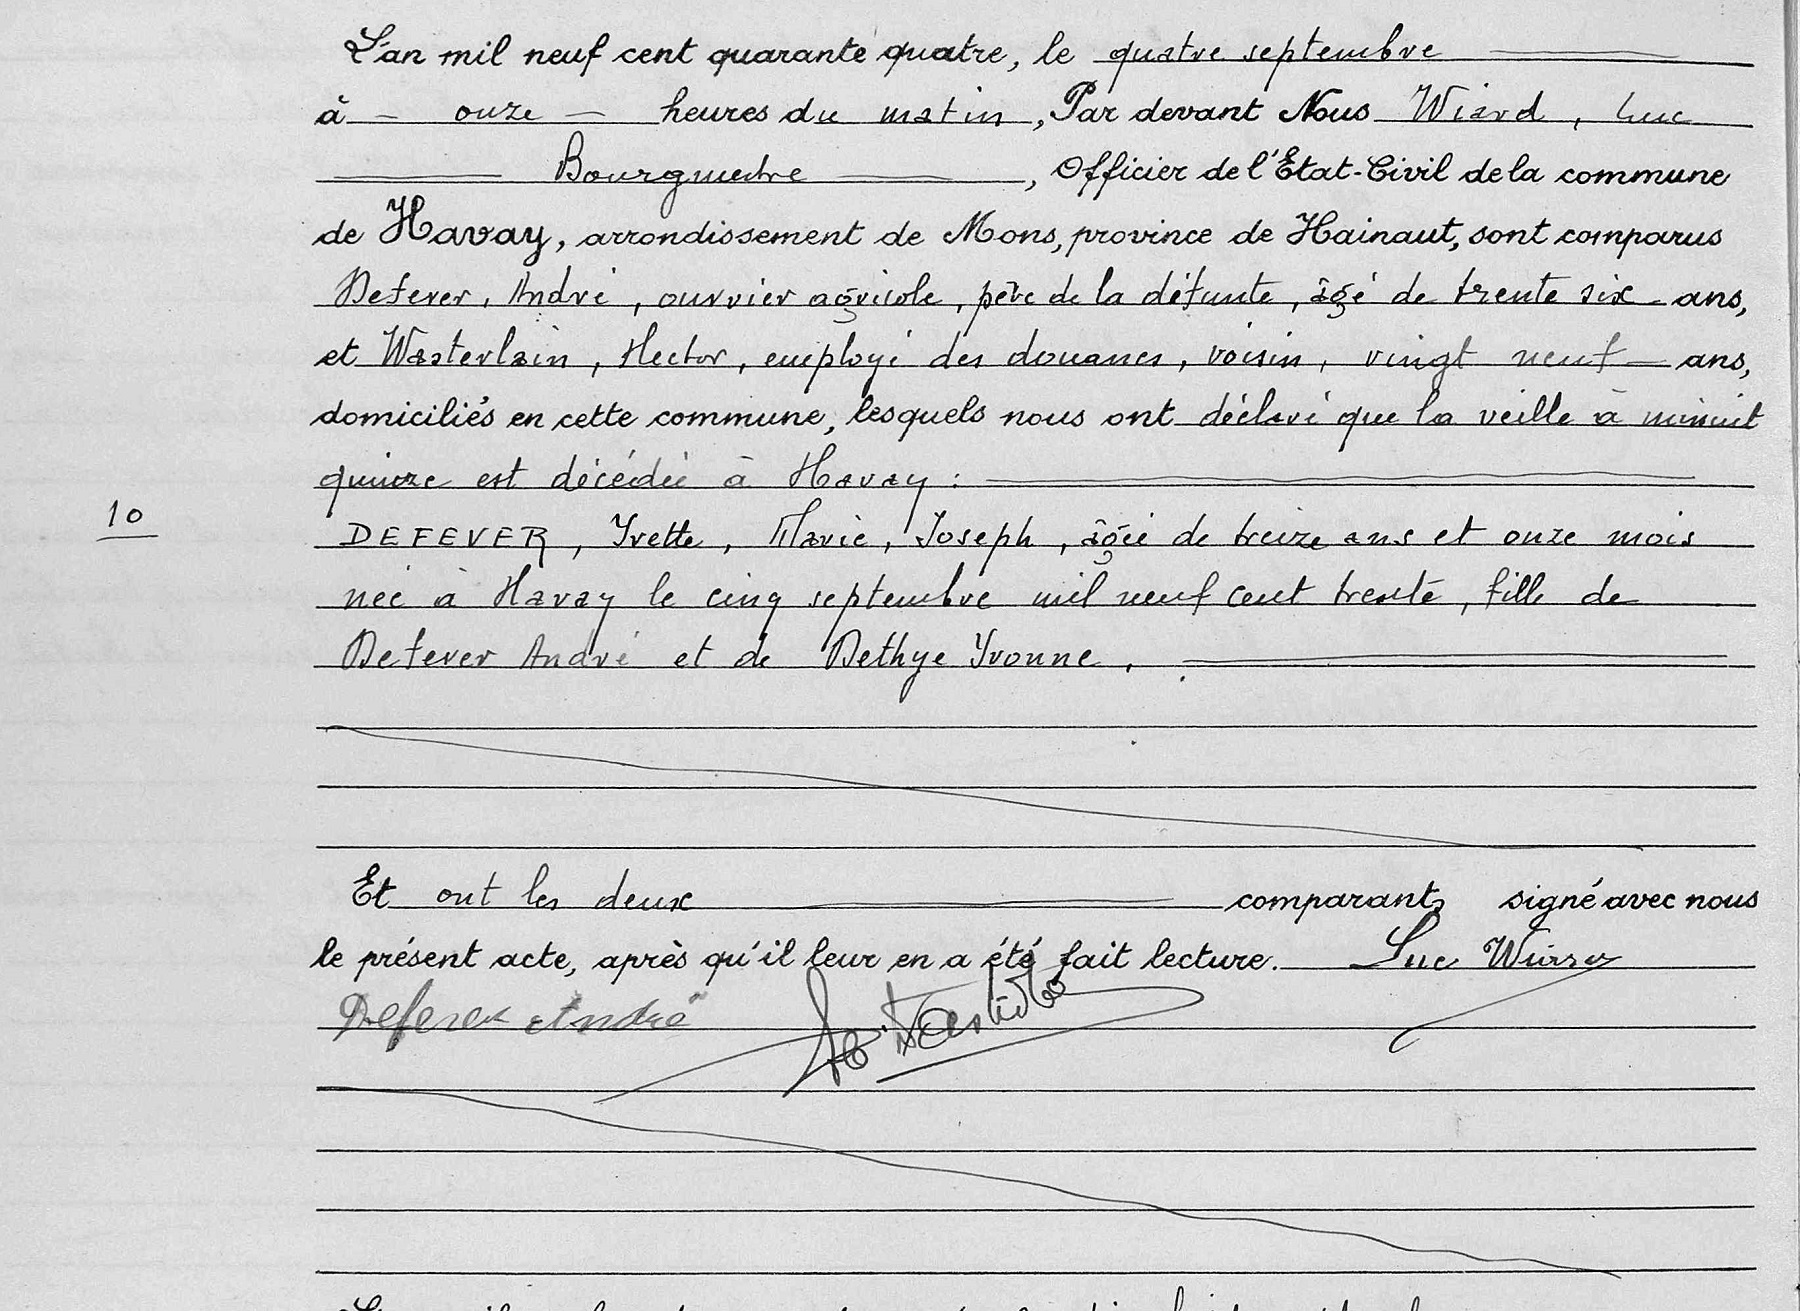 L'an mil neuf cent quarante quatre, le quatre septembre
à - onze - heures du matin, Par devant Nous Wiard, Luc
Bourgmestre, Officier de l'Etat-Civil de la commune
de Havay, arrondissement de Mons, province de Hainaut, sont comparus
Defever, André, ouvrier agricole, père de la défunte, âgé de trente six ans,
et Wasterlain, Hector, employé des douanes, voisin, vingt neuf ans,
domiciliés en cette commune, lesquels nous ont déclaré que la veille à minuit
quinze est décédée à Havay :
10
DEFEVER, Yvette, Marie, Joseph, âgée de treize ans et onze mois
née à Havay le cinq septembre mil neuf cent trente, fille de
Defever André et de Dethye Yvonne.
Et ont les deux comparants signé avec nous
le présent acte, après qu'il leur en a été fait lecture. Luc
Defever André